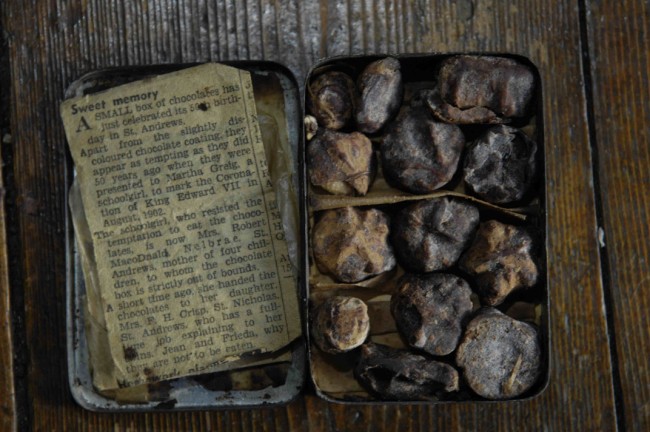 Sweet memory
A SMALL box of chocolates has
just celebrated its 50th birth-
day in St. Andrews.
Apart from the slightly dis-
coloured chocolate coating, they
appear as tempting as they did
50 years ago when they were
presented to Martha Greig, a
schoolgirl, to mark the Corona-
tion of King Edward VII in
August, 1902.
The schoolgirl, who resisted the
temptation to eat the choco-
lates, is now Mrs. Robert
MacoDonald Nelbrae, St.
Andrews, mother of four chil-
dren, to whom the chocolate
box is strictly out of bounds.
A short time ago, she handed the
chocolates to her daughter,
Mrs. E. H. Crisp, St. Nicholas,
St. Andrews, who has a full-
time job explaining to her
twins, Jean and Frieda, why
they are not to be eaten.